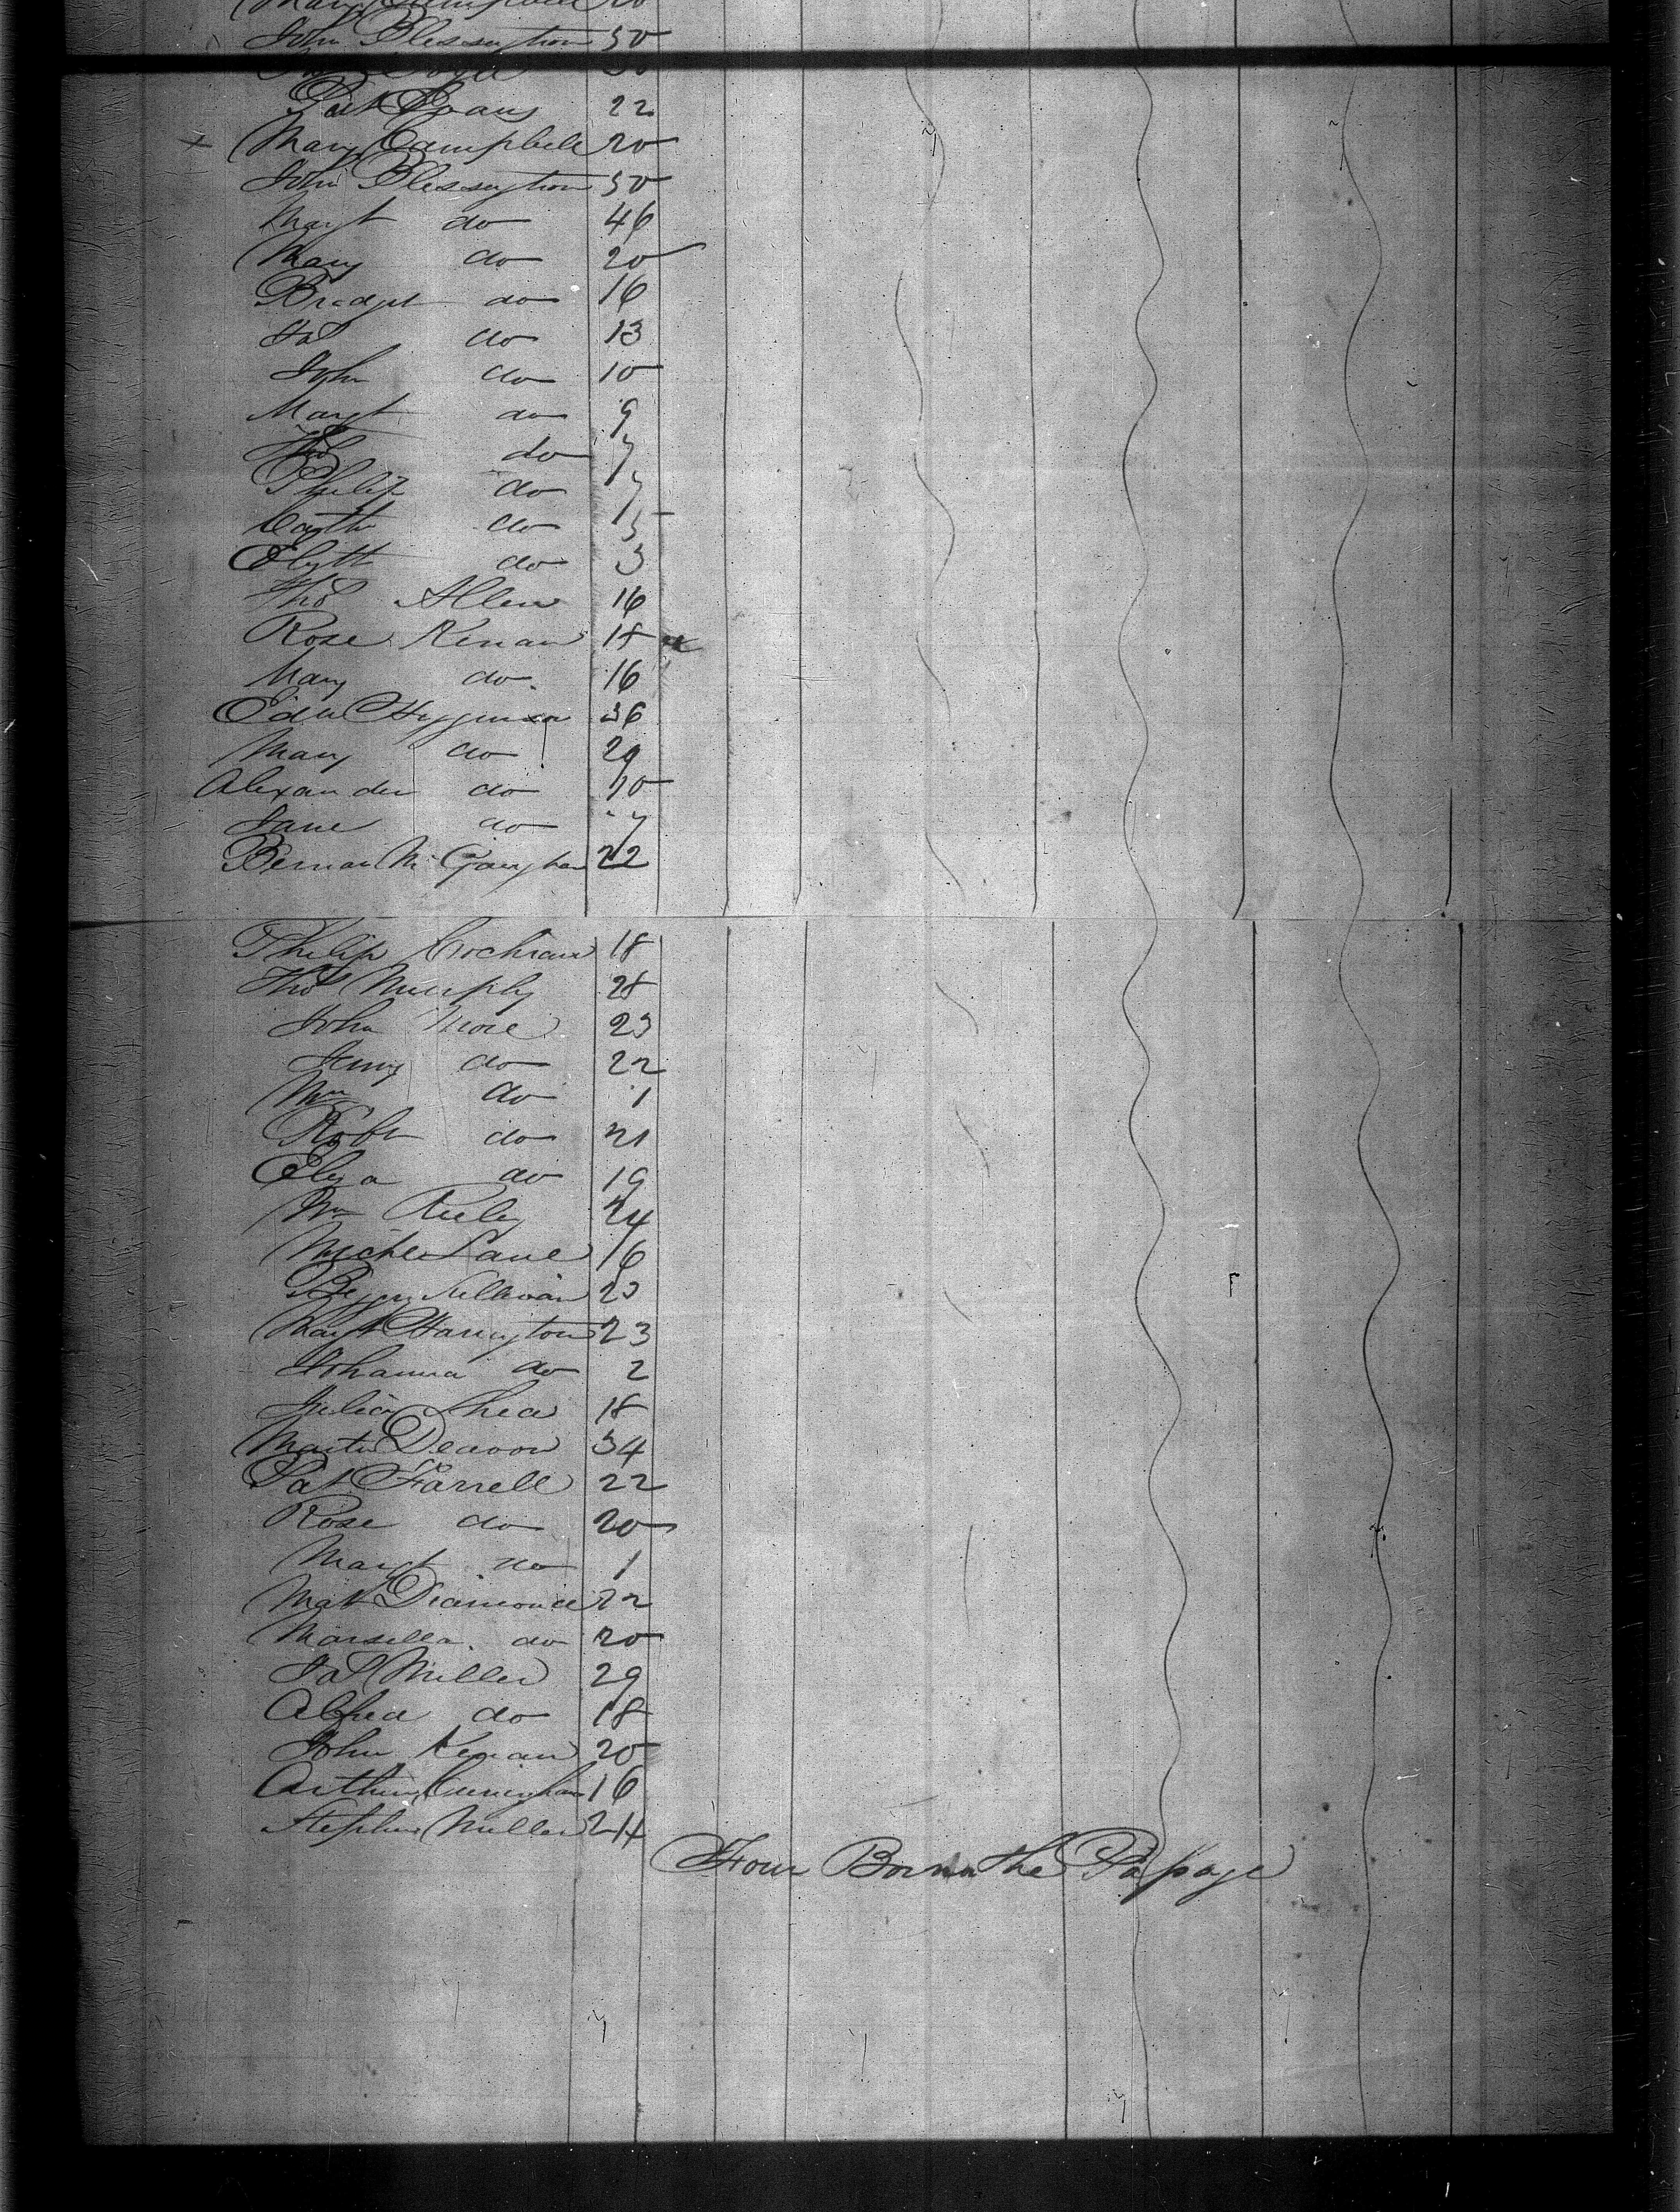 Mary Campbell 20
John Blessington 50
Pat 22
Mary Campbell 20
John Blessington 50
Margt do 46
Mary do 20
Bridget do 16
Jas do 13
John do 10
Margt do 9
Thos do 7
Philip do 7
Cathe do 5
Elizth do 3
Thos Allen 16
Rose Kenan 18
Mary do 16
Edw Higginson 36
Mary do 29
Alexander do 10
Jane do 7
Bernard McGaughan 22
Philip Cochran 18
Thos Murphy 28
John More 23
Jenny do 22
Wm do 1
Robt do 21
Eliza do 19
Wm Kiely 24
Michl Lane 16
Peggy Sullivan 23
Margt Harrington 23
Johanna do 2
Julia Shea 18
Martin 34
Pat Farrell 22
Rose do 20
Margt do 1
Mat Diamond 22
Marsella do 20
Jas Miller 29
do 18
John Kenan 20
Arthur Cunningham 16
Stephen Miller 24
Four Born on the Passage